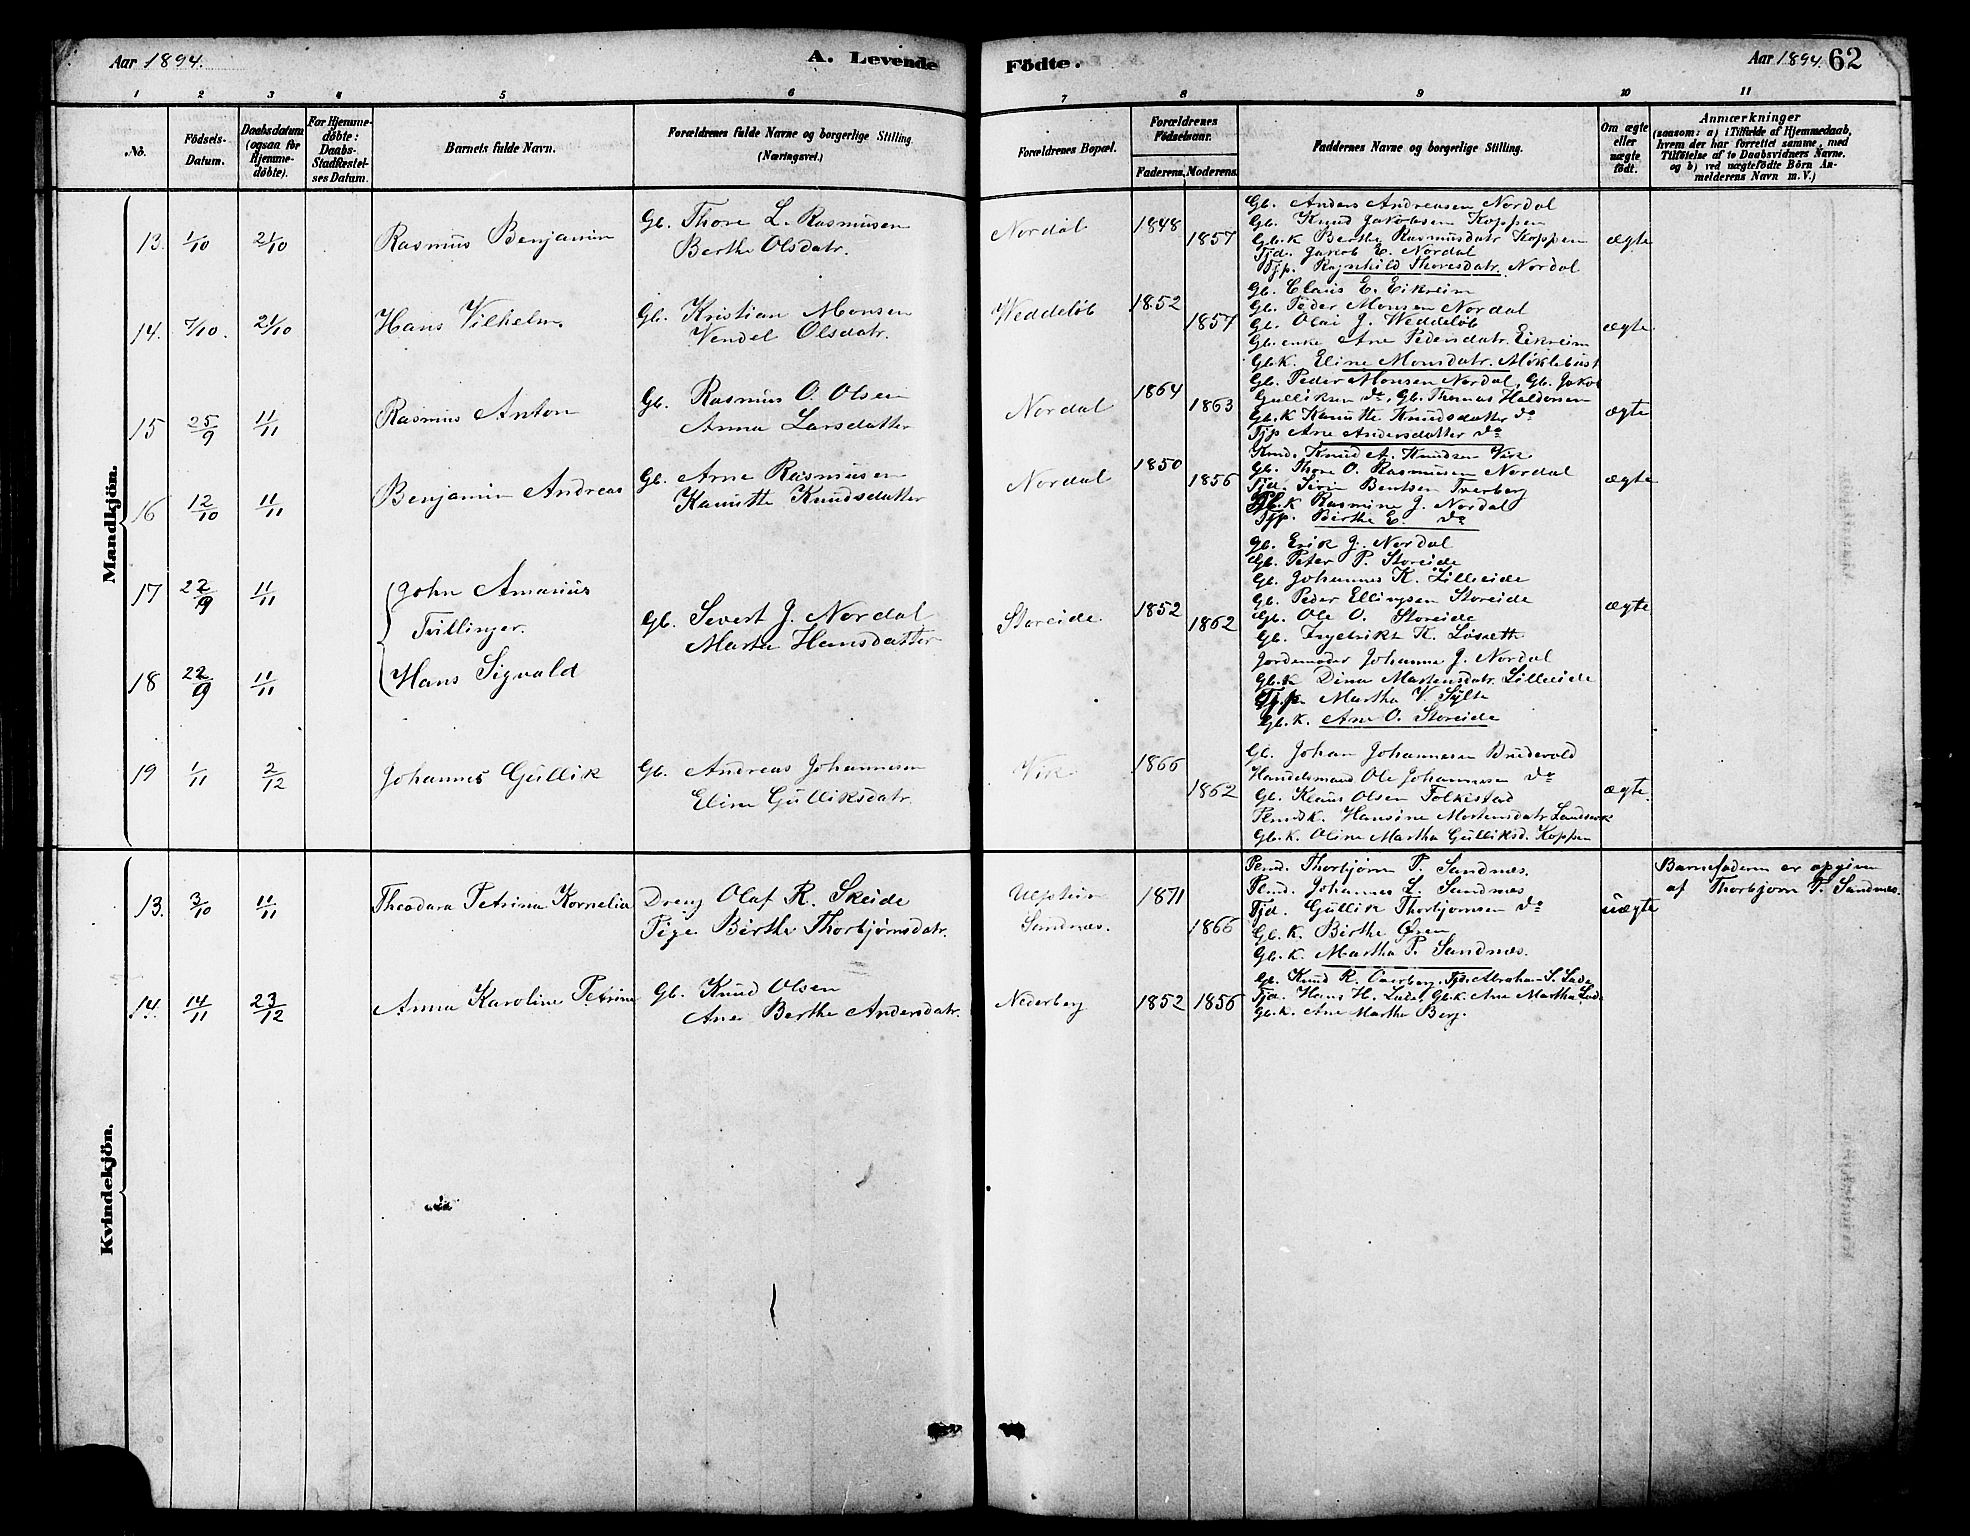 Aar 1894. A. Levende Födte. Aar 1894. 62
1 2 3 4 5 6 7 8 9 10 11
No.
Födsels-Datum.
Daabsdatum (ogsaa for Hjemme-döbte).
For Hjemme-döbte: Daabs-Stadfæstel-ses Datum.
Barnets fulde Navn.
Forældrenes fulde Navne og borgerlige Stilling.
(Næringsvei.)
Forældrenes Bopæl.
Forældrenes Födselsaar.
Faderens. Moderens.
Faddernes Navne og borgerlige Stilling.
Om ægte eller uægte födt.
Anmærkninger
(saasom: a) i Tilfælde af Hjemmedaab, hvem der har forrettet samme, med Tilföielse af to Daabsvidners Navne. og b) ved uægtefödte Börn Anmelderens Navn m. V.)
Mandkjön.
13. 1/10 21/10 Rasmus Benjamin
Gb. Thore L. Rasmusen
Berthe Olsdatr.
Nordal 1848 1857
Gb. Anders Andreasen Nordal
Gb. Knud Jakobsen Koppen
Gb.k Berthe Rasmusdatr Koppen
Tjd. Jakob E. Nordal
Tjp. Ragnhild Thoresdatr. Nordal
ægte
14. 7/10. 21/10 Hans Vilhelm
Gb. Kristian Monsen
Vendel Olsdatr.
Weddeløb 1852 1857
Gb. Claus E. Eikreim
Gb. Peder Monsen Nordal
Gb. Olai J. Weddeløb
Gb. enke Ane Pedersdatr. Eikreim
Gb.k. Eline Monsdatr. Myklebust
ægte
15 25/9 11/11 Rasmus Anton
Gb. Rasmus O. Olsen
Anna Larsdatter
Nordal 1864 1863
Gb. Peder Monsen Nordal, Gb. Jakob
Gulliksen do, Gb. Thomas Haldorsen
Gb.k Kanutte Knudsdatter do
Tjp Ane Andersdatter do
ægte
16 12/10 11/11 Benjamin Andreas
Gb. Arne Rasmusen
Kanutte Knudsdatter
Nordal 1850 1856
Knud A. Knudsen Vik
Gb. Thore O. Rasmusen Nordal
Tjd. Sivin Bentsen Tverberg
Gb.k Rasmine J. Nordal
Tjp. Birthe E. do
ægte
17 22/9 11/11 John Amanius
Tvillinger.
18 22/9 11/11 Hans Sigvald
Gb. Severt J. Nordal
Marta Hansdatter
Storeide 1852 1862
Gb. Erik J. Nordal
Gb. Peter P. Storeide
Gb. Johannes K. Lilleeide
Gb. Peder Ellingsen Storeide
Gb. Ole O. Storeide
Gb. Ingebrikt K. Løseth
Jordemoder Johanne J. Nordal
Gb.k Dina Martensdatr. Lilleeide
Tjp. Martha V. Sylte
Gb.k. Ane O. Storeide
ægte
19 1/11 2/12 Johannes Gullik
Gb. Andreas Johannesen
Eline Gulliksdatr.
Vik 1866 1862
Gb. Johan Johannesen Brudevold
Handelsmand Ole Johannesen do
Gb. Klaus Olsen Folkestad
Hansine Mortensdatr
Gb.k. Oline Martha Gulliksd. Koppen
ægte.
Kvindekjön.
13. 3/10 11/11 Theodara Petrina Kornelia
Dreng Olaf R. Skeide
Pige Birthe Thorbjørnsdatr.
Ulfstein
Sandnæs.
1871 1866
Pend. Thorbjørn P. Sandnæs.
Pend. Johannes L. Sandnæs
Tjd. Gullik Thorbjørnsen do
Gb.k. Birthe Øren
Gb.k. Martha P. Sandnæs.
uægte
Barnefaderen er opgiven
af Thorbjørn P. Sandnæs.
14. 14/11 23/12 Anna Karoline Petrine
Gb. Knud Olsen
Ane Berthe Andersdatr.
Nederberg 1852 1856
Gb. Knud R. Overberg. Tjd. Abraham S. Lade
Tjd. Hans H. Lade, Gb.k. Ane Martha Lade
Gb.k. Ane Marthe Berg.